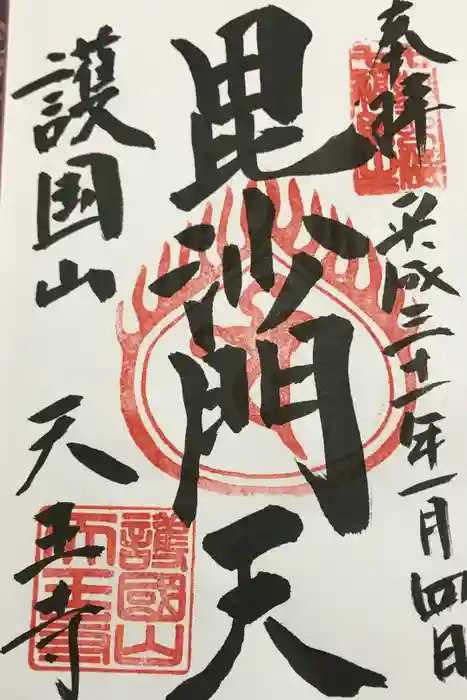 奉拝
平成三十一年一月四日
毘沙門天
護国山
天王寺
護國山
天王寺